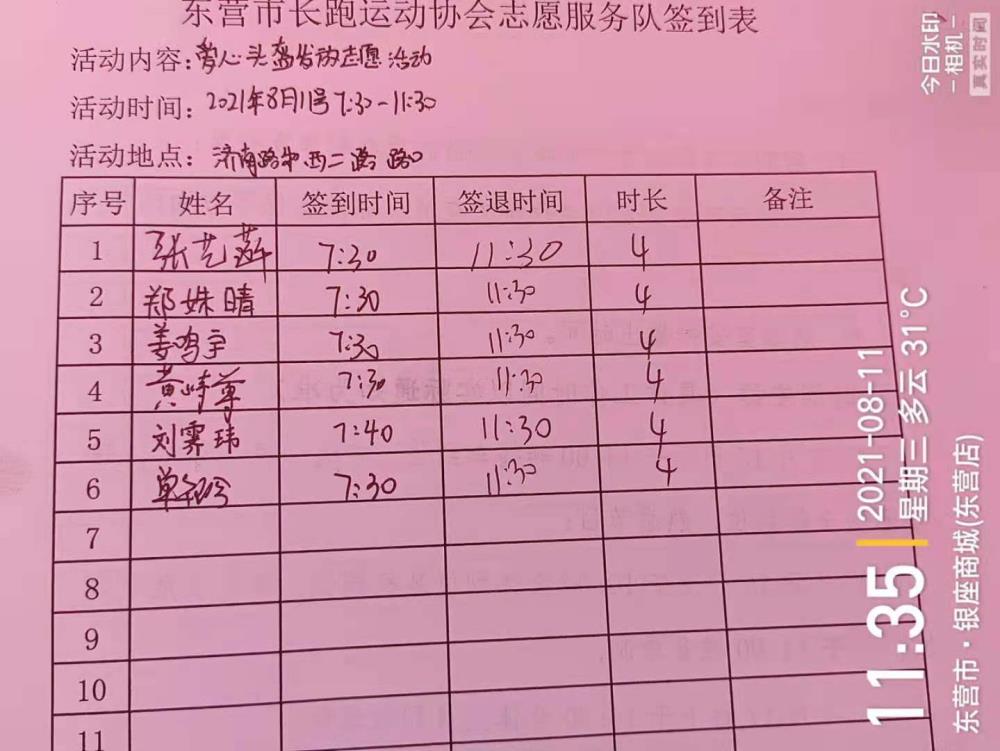 东营市长跑运动协会志愿服务队签到表
活动内容:爱心头盔发放志愿活动
活动时间:2021年8月11号7:30-11:30
活动地点:济南路中西二路路口
序号 姓名 签到时间 签退时间 时长 备注
1 张艺 7:30 11:30 4
2 郑姝晴 7:30 11:30 4
3 姜鸣宇 7:30 11:30 4
4 黄崎尊 7:30 11:30 4
5 刘霁玮 7:40 11:30 4
6 单 7:30 11:30 4
7
8
9
10
11
今日水印
-相机-
真实时间
11:35
2021-08-11
星期三 多云 31℃
东营市·银座商城(东营店)